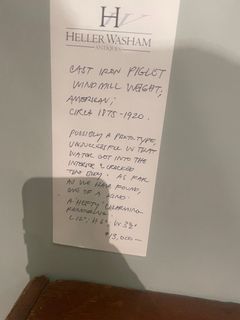 H W
HELLER WASHAM
ANTIQUES
CAST IRON PIGLET
WINDMILL WEIGHT;
AMERICAN;
CIRCA 1875-1920.
POSSIBLY A PROTOTYPE
UNSUCCESSFUL IN THAT
WATER GOT INTO THE
INTERIOR & CRACKED
THE BODY. AS FAR
AS WE HAVE FOUND,
ONE OF A KIND.
A HEFTY CHARMING
L 12", H 6", W 3½"
$13,000—